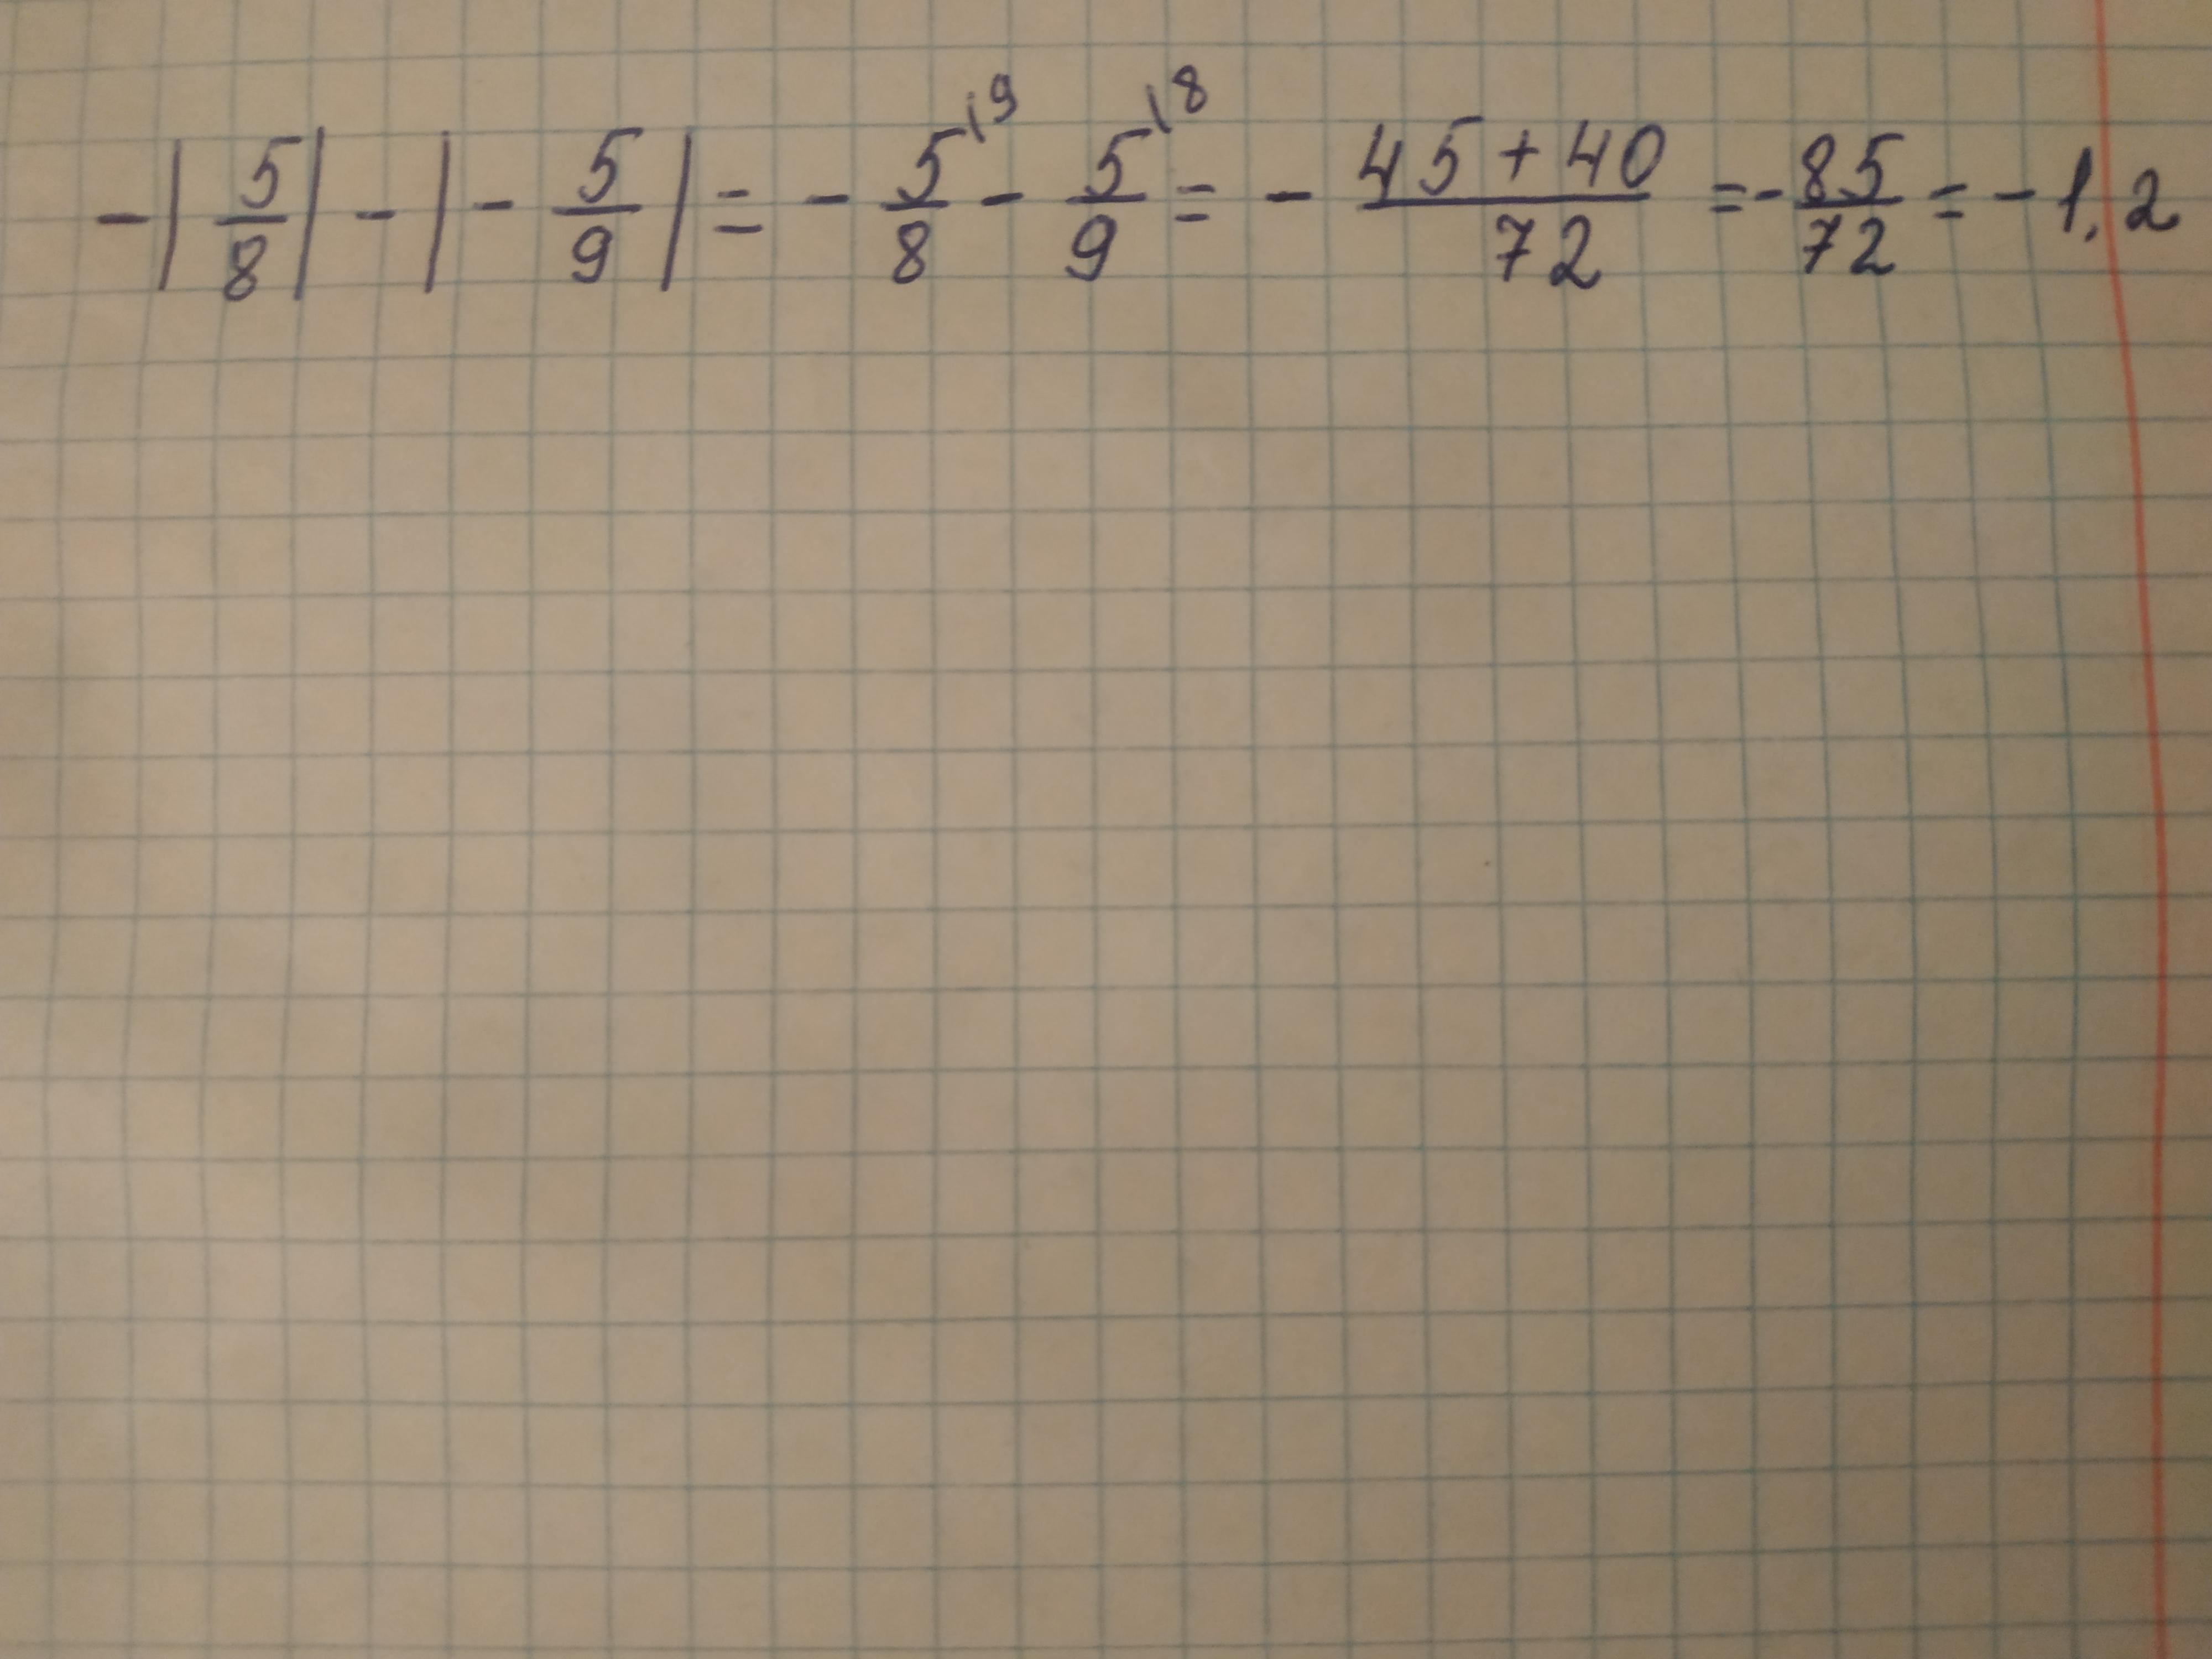 -|5/8| - |-5/9| = - 5/8\9 - 5/9\8 = - 45+40/72 = - 85/72 = - 1,2